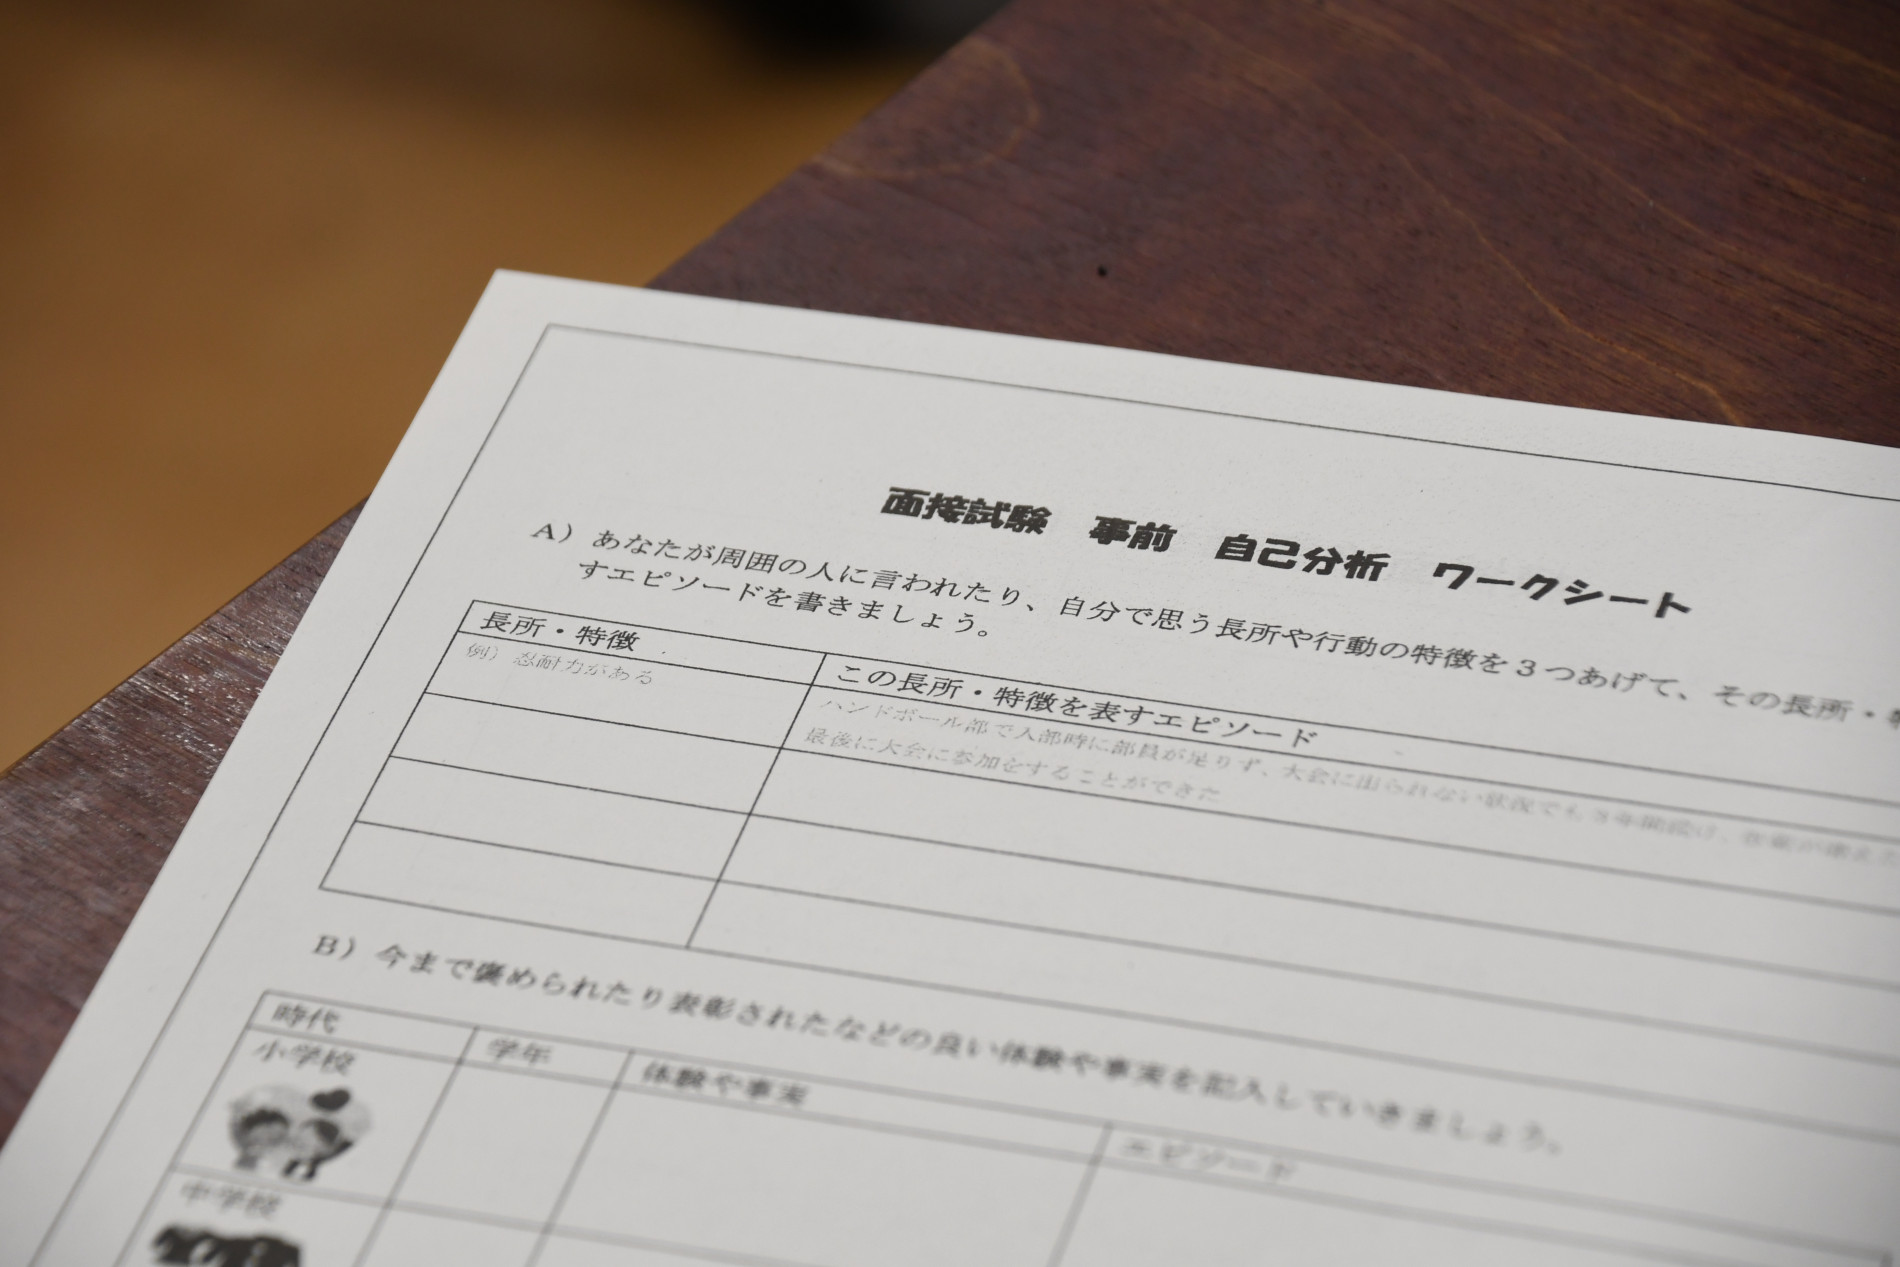 面接試験　事前　自己分析　ワークシート
A）あなたが周囲の人に言われたり、自分で思う長所や行動の特徴を３つあげて、その長所・特
すエピソードを書きましょう。
長所・特徴
この長所・特徴を表すエピソード
例）忍耐力がある
ハンドボール部で入部時に部員が足りず、大会に出られない状況でも３年間続け、
最後に大会に参加をすることができた
B）今まで褒められたり表彰されたなどの良い体験や事実を記入していきましょう。
時代
学年
体験や事実
エピソード
小学校
中学校